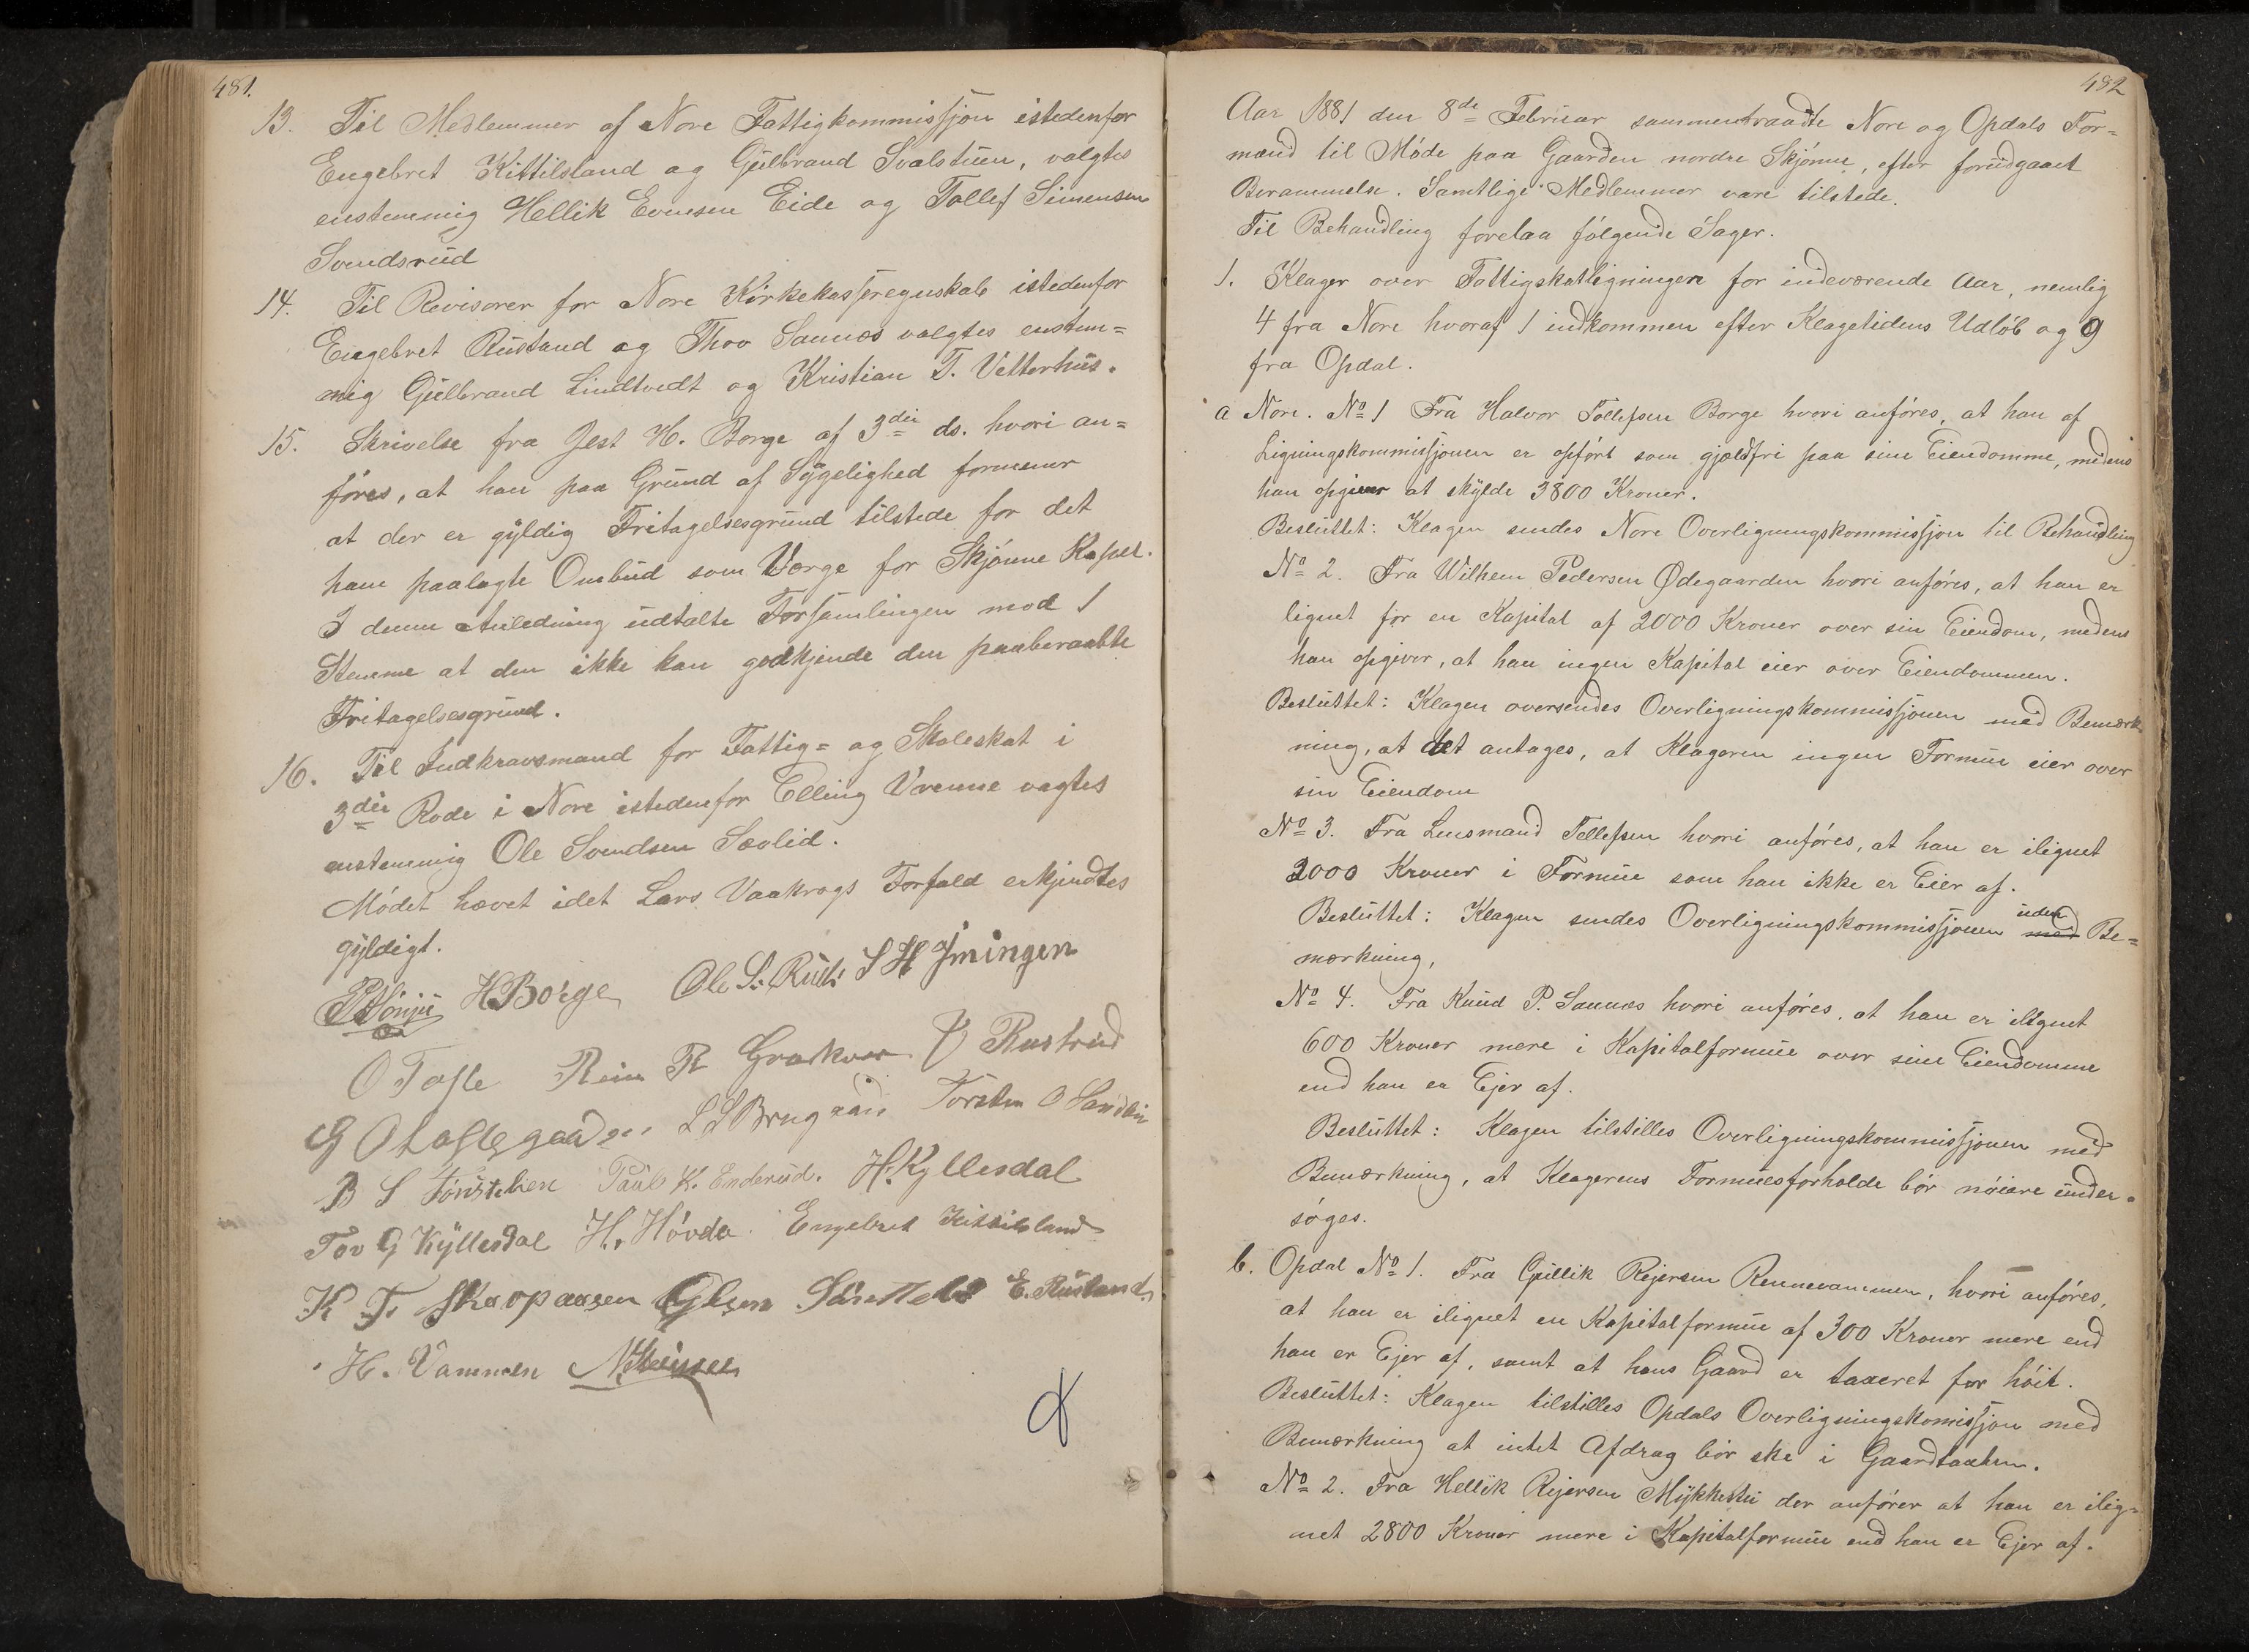 481.
13. Til Medlemmer af Nore Fattigkommissjon istedenfor
Engebret Kittilsland og Gulbrand Svalstuen, valgtes
enstemmig Hellik Evensen Eide og Tollef Simensen
Svendsrud
14. Til Revisorer for Nore Kirkekasseregnskab istedenfor
Engebret Rustand og Thov Sannes valgtes enstem=
mig Gulbrand Lindtvedt og Kristian T. Vetterhus.
15. Skrivelse fra Gest H. Borge af 3die ds. hvori an=
føres, at han paa Grund af Sygelighed formener
at der er gyldig Fritagelsesgrund tilstede for det
ham paalagte Ombud som Værge for Skjønne Kapel.
I denne Anledning udtalte Forsamlingen mod 1
Stemme at den ikke kan godkjende den paaberaabte
Fritagelsesgrund.
16. Til Indkravsmand for Fattig= og Skoleskat i
3die Rode i Nore istedenfor Elling Vrenne vagtes
enstemmig Ole Svendsen Sævlid.
Mødet hævet idet Lars Vaakrags Forfald erkjendtes
gyldigt.
HBorge Ole S. Rud S H Imingen
O Tofte R Rustrud
G O L L Torsten O
B S Paul K. Enderud. H. Kyllesdal
Tov G Kyllesdal H. Hovda. Engebret Kittilsland
K T Skaopaasen E. Rustand.
H. Vammen
482
Aar 1881 den 8de Februar sammentraadte Nore og Opdals For=
mænd til Møde paa Gaarden nordre Skjønne, efter forudgaaet
Berammelse. Samtlige Medlemmer vare tilstede.
Til Behandling forelaa følgende Sager.
1. Klager over Fattigskatligningen for indeværende Aar, nemlig
4 fra Nore hvoraf 1 indkommen efter Klagetidens Udløb og 9
fra Opdal.
a Nore. No 1 Fra Halvor Tollefsen Borge hvori anføres, at han af
Ligningskommissjonen er opført som gjældfri paa sine Eiendomme, medens
han opgiver at skylde 3800 Kroner.
Besluttet: Klagen sendes Nore Overligningskommissjon til Behandling
No 2. Fra Wilhem Pedersen Ødegaarden hvori anføres, at han er
lignet for en Kapital af 2000 Kroner over sin Eiendom, medens
han opgiver, at han ingen Kapital eier over Eiendommen.
Besluttet: Klagen oversendes Overligningskommissjonen med Bemærk
ning, at det antages, at Klageren ingen Formue eier over
sin Eiendom
No 3. Fra Lensmand Tollefsen hvori anføres, at han er ilignet
2000 Kroner i Formue som han ikke er Eier af.
Besluttet: Klagen sendes Overligningskommissjonen med uden Be=
mærkning,
No 4. Fra Knud P. Sannes hvori anføres, at han er ilignet
600 Kroner mere i Kapitalformue over sine Eiendomme
end han er Ejer af.
Besluttet: Klagen tilstilles Overligningskommissjonen med
Bemærkning, at Klagerens Formuesforholde bør nøiere under=
søges.
b. Opdal No 1. Fra Gullik Rejersen Rennevammen, hvori anføres,
at han er ilignet en Kapitalformue af 300 Kroner mere end
han er Ejer af, samt at hans Gaard er taxeret for høit.
Besluttet: Klagen tilstilles Opdals Overligningskomissjon med
Bemærkning at intet Afdrag bør ske i Gaardtaxten.
No 2. Fra Hellik Rejersen Mykkestu der anfører at han er ilig=
net 2800 Kroner mere i Kapitalformue end han er Ejer af.